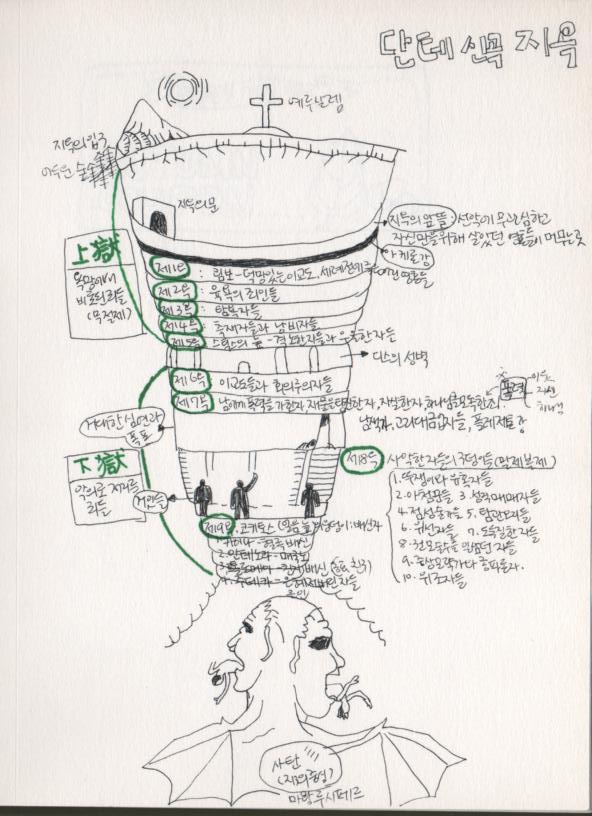 단테 신곡 지옥
예루살렘
지옥의 입구
어두운 숲속
지옥의문
지옥의 앞뜰 : 선악에 무관심하고
자신만을위해 살았던 영혼들이 머무는곳
아케론강
上獄
욕망에서
비롯된죄들
(무절제)
제1옥 : 림보-덕망있는이교도, 세례전에죽은 어린 영혼들
제2옥 : 육욕의 죄인들
제3옥 : 탐욕자들
제4옥 : 축재자들과 낭비자들
제5옥 스틱스의 늪-격노한자들과 우울한자들
디스의 성벽
제6옥 이교도들과 회의주의자들
제7옥 남에게 폭력을 가한자, 자살한자, 하나님을모독한자
폭력
이웃
자신
하나님
남색가, 고리대금업자들, 플레제토강
거대한 심연과
폭포
下獄
악의로 저지른
죄들
거인들
제8옥 사악한자들의 구덩이들 (말레볼제)
1. 뚜쟁이와 유혹자들
2. 아첨꾼들 3. 성직매매자들
4. 점성술가들 5. 탐관오리들
6. 위선자들 7. 도둑질한자들
8. 권모술수를 일삼던 자들
9. 중상모략가와 종파분자.
10. 위조자들
제9옥. 코키토스 (얼음 늪) 웅덩이 : 배신자
1. 카이나 - 혈족 배신
2. 안테노라 - 매국노
3. 톨로메아 - 친구배신 (동료, 친구)
4. 주데카 - 은혜저버린자들
사탄
(죄의 형성)
마왕루시페르